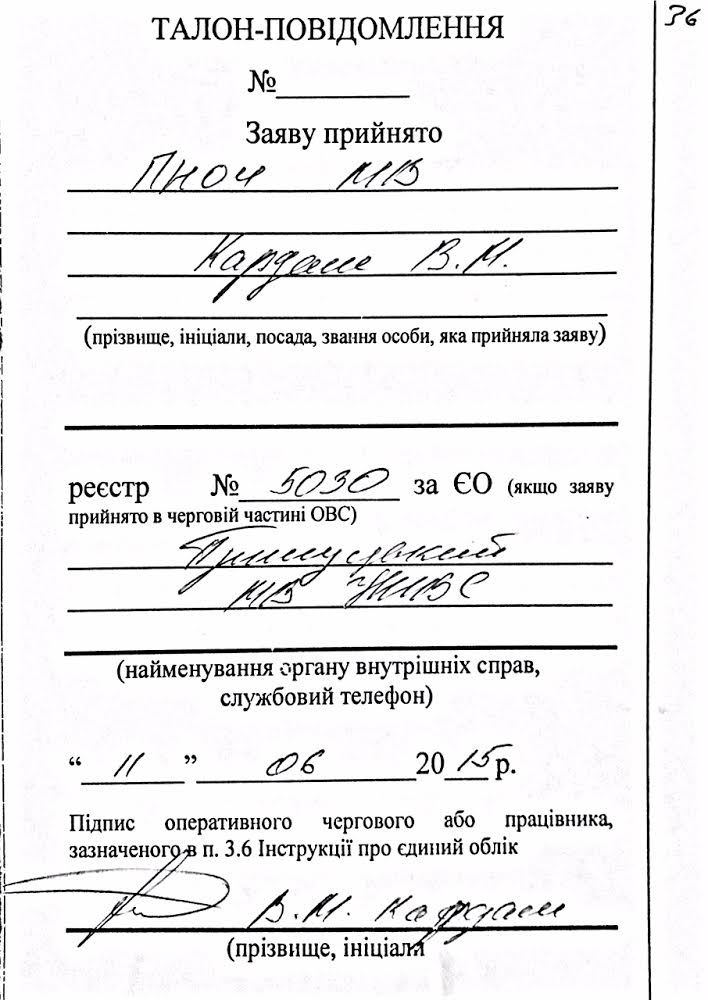 36
ТАЛОН-ПОВІДОМЛЕННЯ
№
Заяву прийнято
ПНОЧ МВ
Кардаш В.М.
(прізвище, ініціали, посада, звання особи, яка прийняла заяву)
реєстр № 5030 за ЄО (якщо заяву
прийнято в черговій частині ОВС)
МВ УМВС
(найменування органу внутрішніх справ,
службовий телефон)
“ 11 ” 06 20 15 р.
Підпис оперативного чергового або працівника,
зазначеного в п. 3.6 Інструкції про єдиний облік
В.М. Кардаш
(прізвище, ініціали